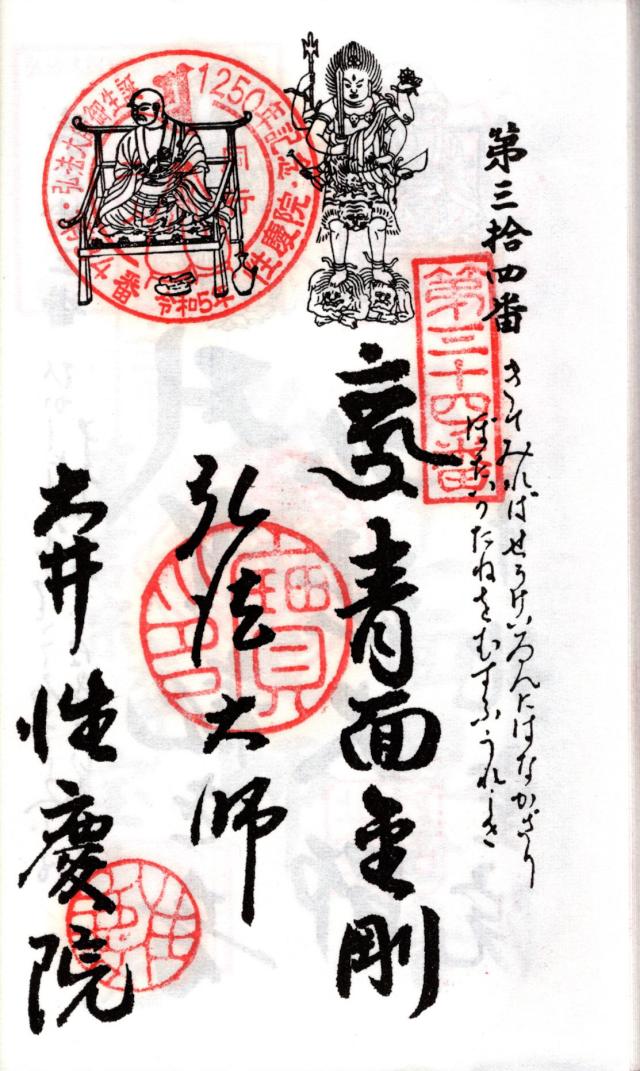 第三拾四番
第三十四番
きてみればせうけいゐんにはなかざり
ぼだいのたねをむすふうれしき
青面金剛
弘法大師
大井 性慶院
弘法大師御生誕
1250年
性慶院
令和5年